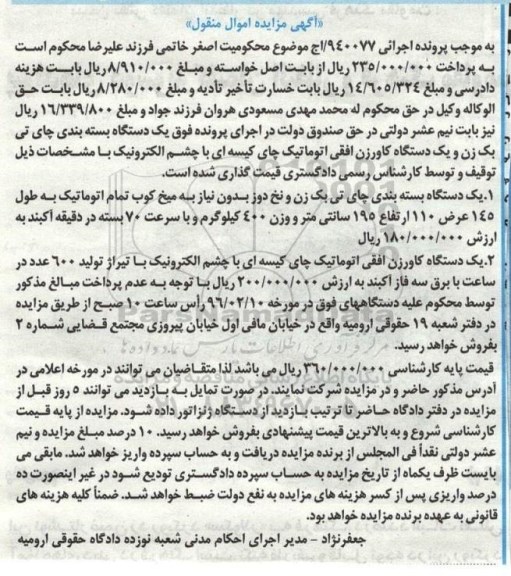 «آگهی مزایده اموال منقول»
به موجب پرونده اجرائی ۹۴۰۰۷۷/اج موضوع محکومیت اصغر خاتمی فرزند علیرضا محکوم است
به پرداخت ۲۳۵/۰۰۰/۰۰۰ ریال از بابت اصل خواسته و مبلغ ۸/۹۱۰/۰۰۰ ریال بابت هزینه
دادرسی و مبلغ ۱۴/۶۰۵/۳۲۴ ریال بابت خسارت تأخیر تأدیه و مبلغ ۸/۲۸۰/۰۰۰ ریال بابت حق
الوکاله وکیل در حق محکوم له محمد مهدی مسعودی هروان فرزند جواد و مبلغ ۱۶/۳۳۹/۸۰۰ ریال
نیز بابت نیم عشر دولتی در حق صندوق دولت در اجرای پرونده فوق یک دستگاه بسته بندی چای تی
بک زن و یک دستگاه کاورزن افقی اتوماتیک چای کیسه ای با چشم الکترونیک با مشخصات ذیل
توقیف و توسط کارشناس رسمی دادگستری قیمت گذاری شده است.
۱.یک دستگاه بسته بندی چای تی بک زن و نخ دوز بدون نیاز به میخ کوب تمام اتوماتیک به طول
۱۴۵ عرض ۱۱۰ ارتفاع ۱۹۵ سانتی متر و وزن ۴۰۰ کیلوگرم و با سرعت ۷۰ بسته در دقیقه آکبند به
ارزش ۱۸۰/۰۰۰/۰۰۰ ریال
۲.یک دستگاه کاورزن افقی اتوماتیک چای کیسه ای با چشم الکترونیک با تیراژ تولید ۶۰۰ عدد در
ساعت با برق سه فاز آکبند به ارزش ۲۰۰/۰۰۰/۰۰۰ ریال با توجه به عدم پرداخت مبالغ مذکور
توسط محکوم علیه دستگاههای فوق در مورخه ۹۶/۰۲/۱۰ رأس ساعت ۱۰ صبح از طریق مزایده
در دفتر شعبه ۱۹ حقوقی ارومیه واقع در خیابان مافی اول خیابان پیروزی مجتمع قضایی شماره ۲
بفروش خواهد رسید.
قیمت پایه کارشناسی ۳۶۰/۰۰۰/۰۰۰ ریال می باشد لذا متقاضیان می توانند در مورخه اعلامی در
آدرس مذکور حاضر و در مزایده شرکت نمایند. در صورت تمایل به بازدید می توانند ۵ روز قبل از
مزایده در دفتر دادگاه حاضر تا ترتیب بازدید از دستگاه ژنراتور داده شود. مزایده از پایه قیمت
کارشناسی شروع و به بالاترین قیمت پیشنهادی بفروش خواهد رسید. ۱۰ درصد مبلغ مزایده و نیم
عشر دولتی نقداً فی المجلس از برنده مزایده دریافت و به حساب سپرده واریز خواهد شد. مابقی می
بایست ظرف یکماه از تاریخ مزایده به حساب سپرده دادگستری تودیع شود در غیر اینصورت ده
درصد واریزی پس از کسر هزینه های مزایده به نفع دولت ضبط خواهد شد. ضمناً کلیه هزینه های
قانونی به عهده برنده مزایده خواهد بود.
جعفرنژاد - مدیر اجرای احکام مدنی شعبه نوزده دادگاه حقوقی ارومیه